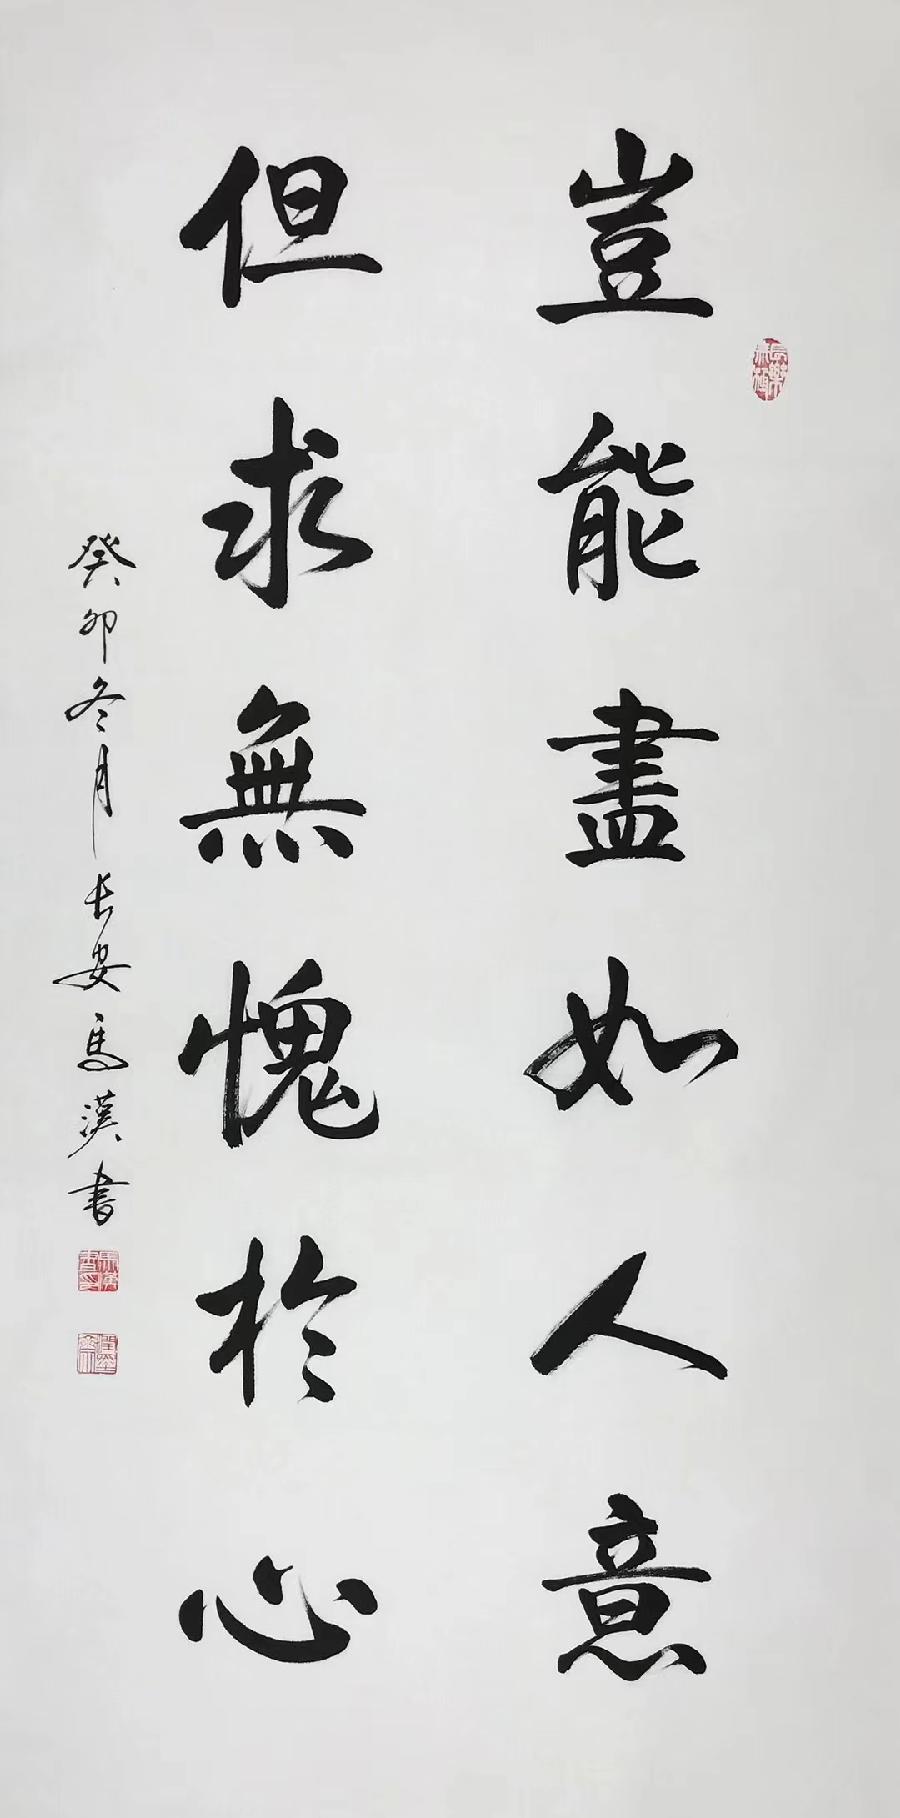 豈能盡如人意
但求無愧於心
癸卯冬月長安馬漢書